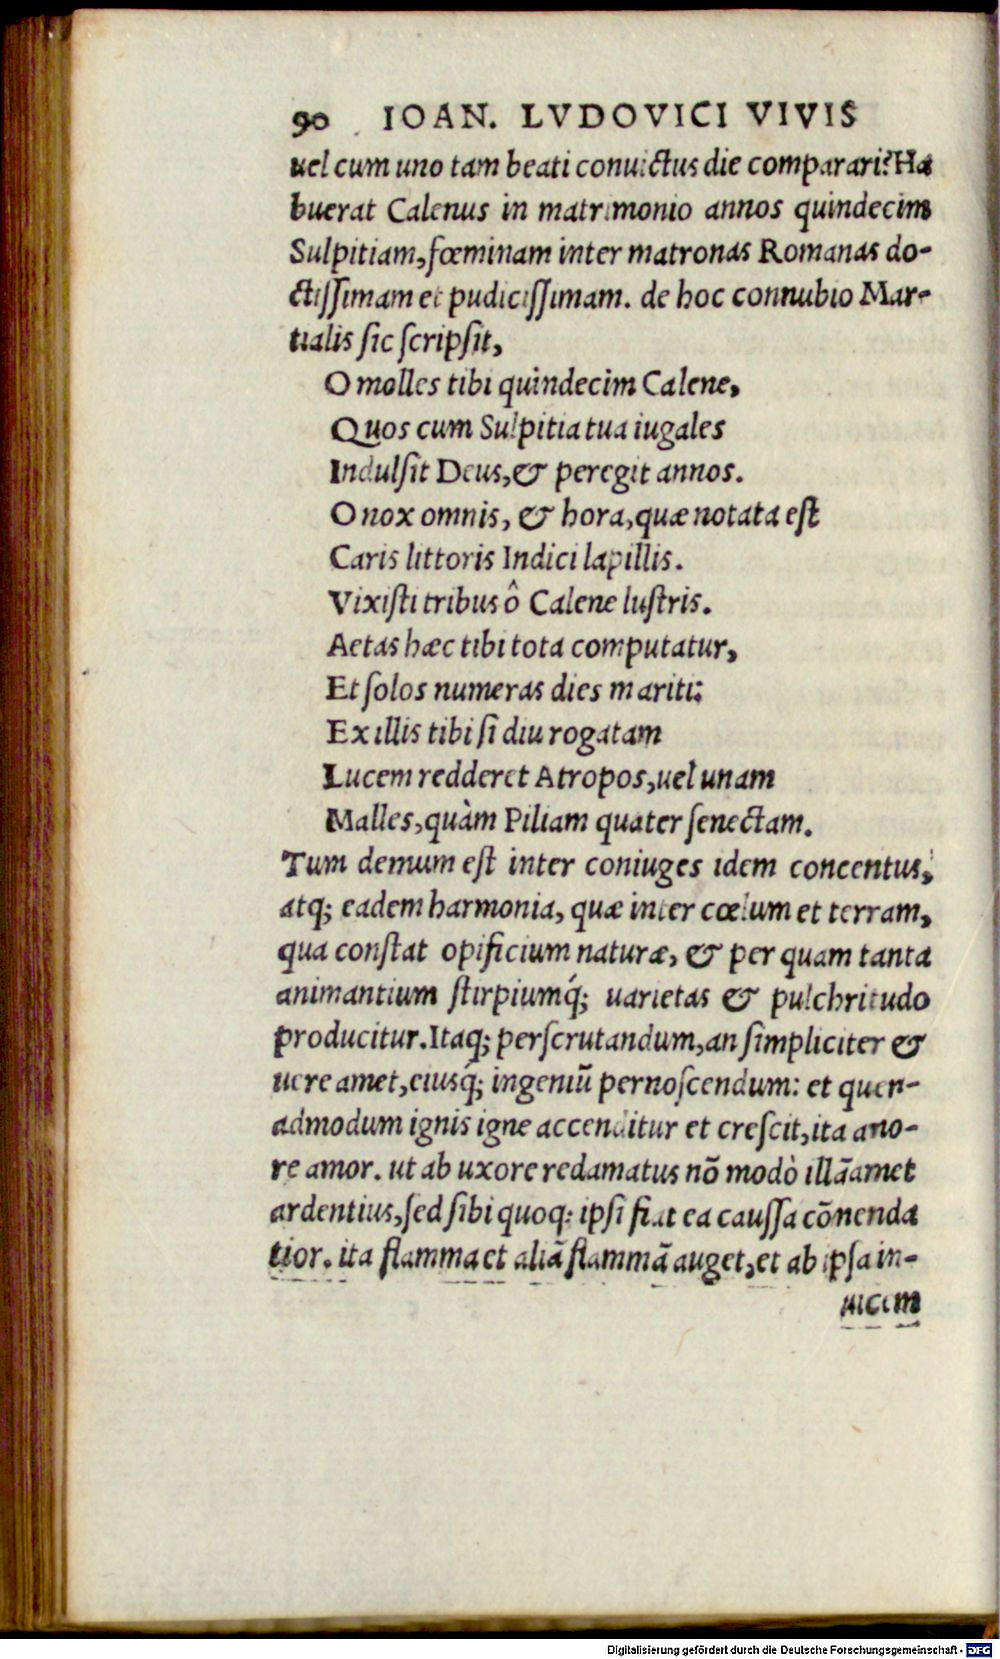 90 IOAN. LVDOVICI VIVIS
uel cum uno tam beati conuictus die comparari? Ha
buerat Calenus in matrimonio annos quindecim
Sulpitiam, fœminam inter matronas Romanas do-
ctissimam et pudicissimam. de hoc connubio Mar-
tialis sic scripsit,
O molles tibi quindecim Calene,
Quos cum Sulpitia tua iugales
Indulsit Deus, & peregit annos.
O nox omnis, & hora, quæ notata est
Caris littoris Indici lapillis.
Vixisti tribus ô Calene lustris.
Aetas hæc tibi tota computatur,
Et solos numeras dies mariti:
Ex illis tibi si diu rogatam
Lucem redderet Atropos, uel unam
Malles, quàm Piliam quater senectam.
Tum demum est inter coniuges idem concentus,
atq; eadem harmonia, quæ inter cœlum et terram,
qua constat opificium naturæ, & per quam tanta
animantium stirpiumq́; uarietas & pulchritudo
producitur. Itaq; perscrutandum, an simpliciter &
uere amet, eiusq́; ingeniū pernoscendum: et quen-
admodum ignis igne accenditur et crescit, ita amo-
re amor. ut ab uxore redamatus nō modò illā amet
ardentius, sed sibi quoq; ipsi fiat ea caussa cōnenda
tior. ita flamma et aliā flammā auget, et ab ipsa in-
uicem
Digitalisierung gefördert durch die Deutsche Forschungsgemeinschaft - DFG